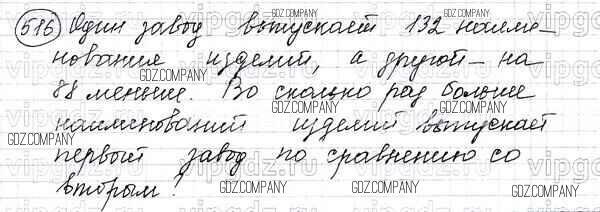 516 Один завод выпускает 132 наиме-
нования изделий, а другой - на
88 меньше. Во сколько раз больше
наименований изделий выпускает
первый завод по сравнению со
вторым?
GDZ.COMPANY
GDZ.COMPANY
GDZ.COMPANY
GDZ.COMPANY
GDZ.COMPANY
GDZ.COMPANY
GDZ.COMPANY
GDZ.COMPANY
GDZ.COMPANY
GDZ.COMPANY
GDZ.COMPANY